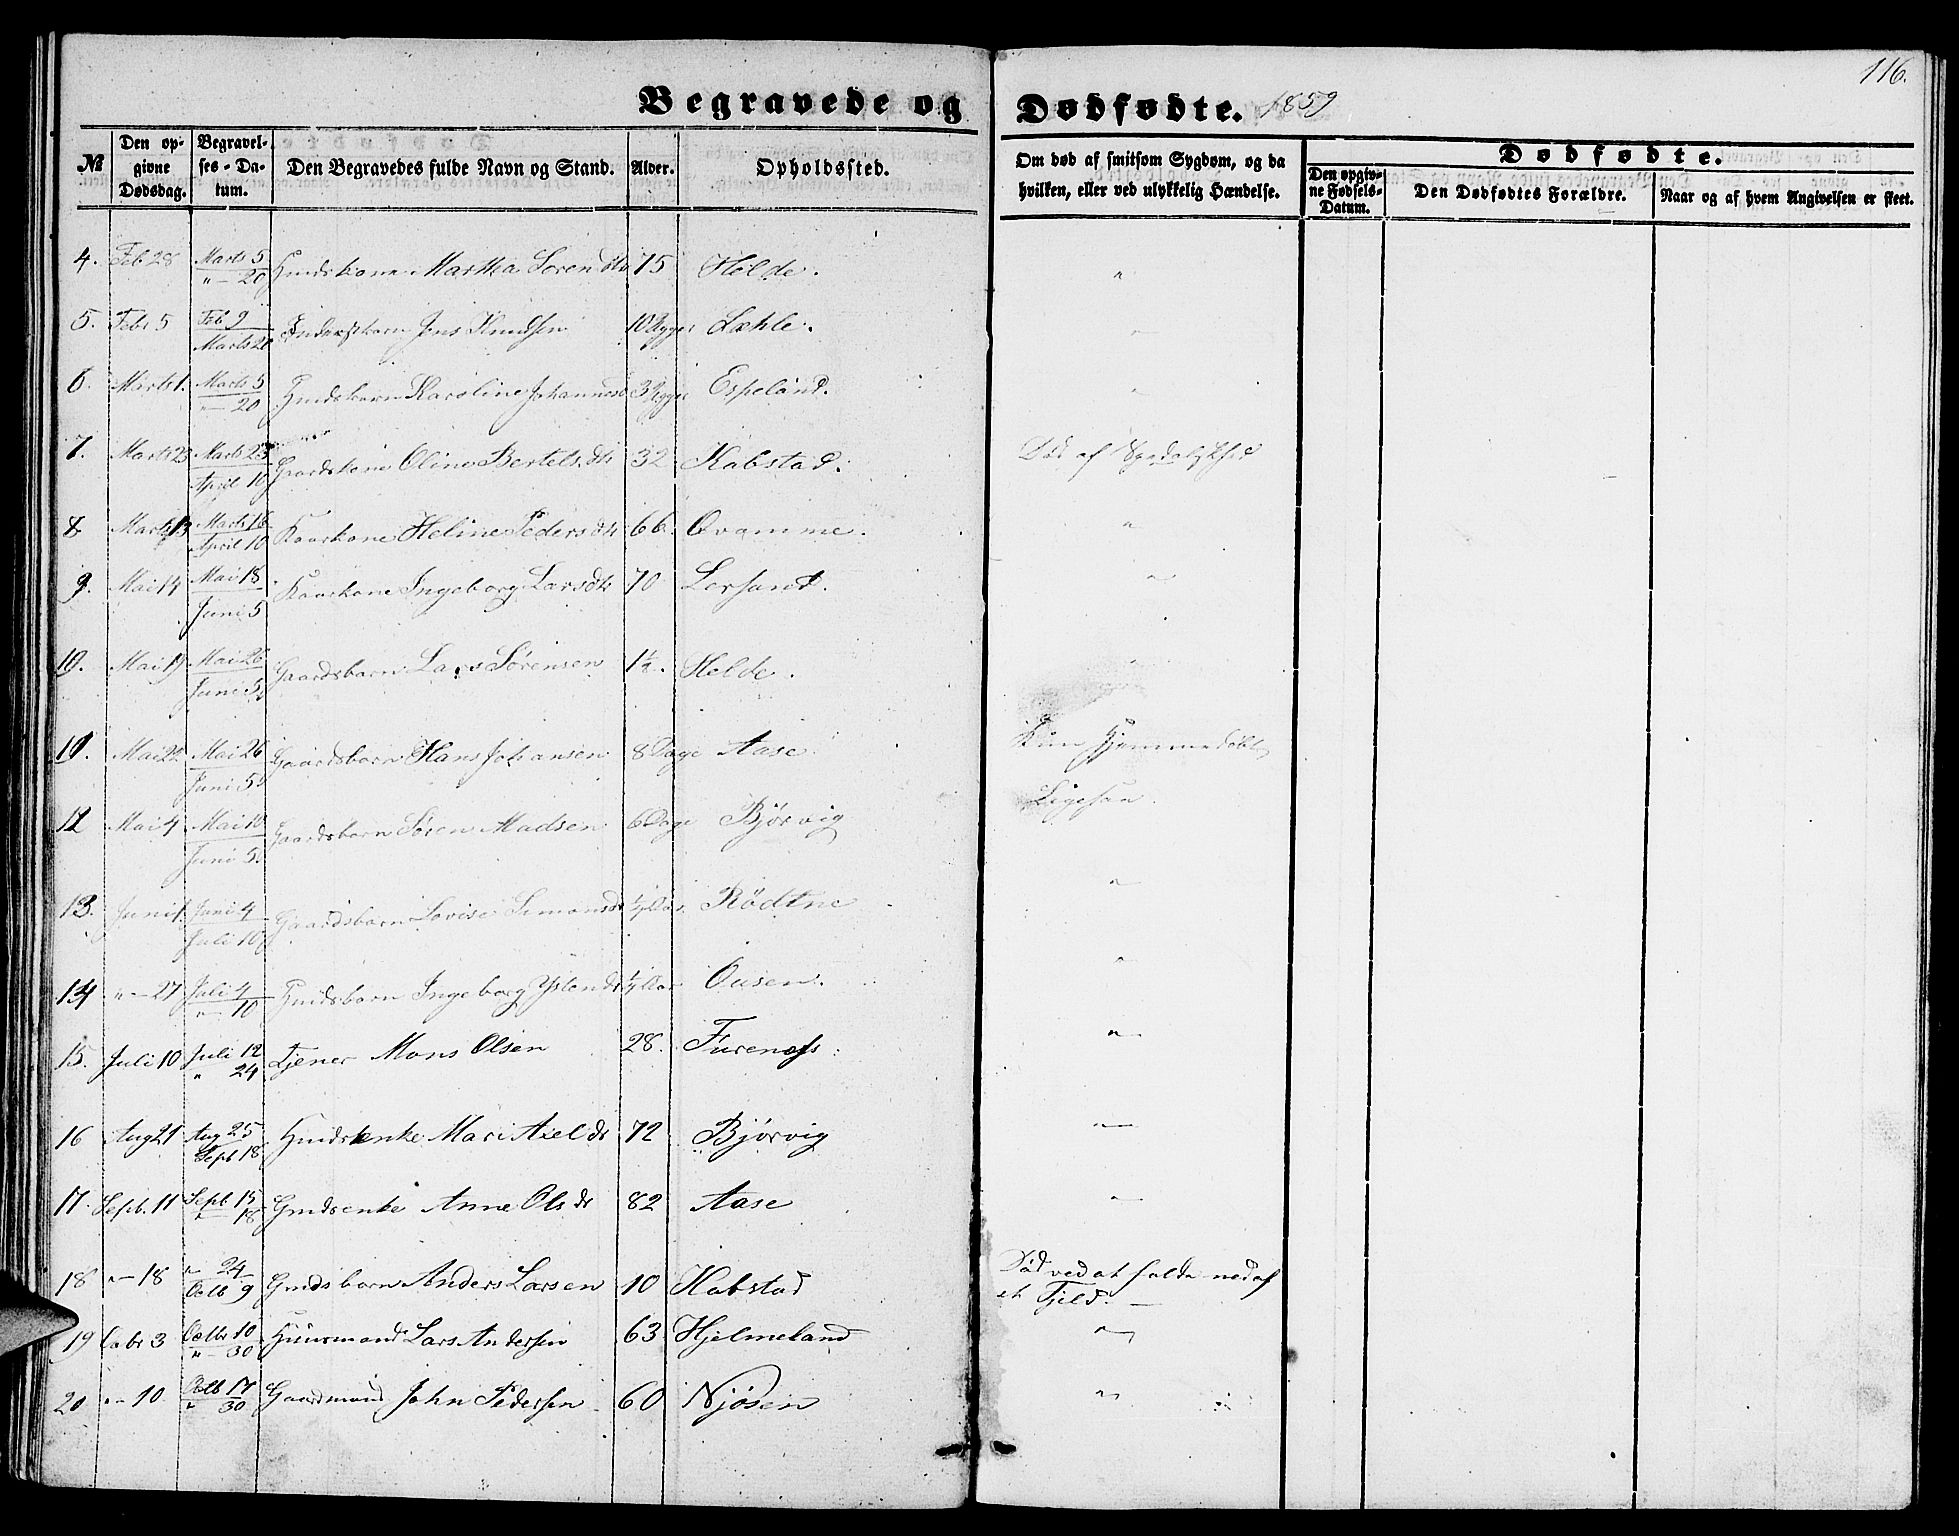 116.
Begravede og Dødfødte. 1859
№ Den opgivne Dødsdag. Begravelses-Datum. Den Begravedes fulde Navn og Stand. Alder. Opholdssted. Om død af smitsom Sygdom, og da hvilken, eller ved ulykkelig Hændelse. Dødfødte.
Den opgivne Fødsels-Datum. Den Dødfødtes Forældre. Naar og af hvem Angivelsen er skeet.
4. Feb 28 Marts 5 " — 20 Martha Sorendtr 75 Helde. "
5. Febr 5 Feb 9 Marts 20 Jens Knudsen 10 Uger "
6. Marts 1. Marts 5 " — 20 Karoline Johannesd 3 Uger Espeland. "
7. Marts 23 Marts 23 April 10 Gaardskone Oline Bertelsdtr 32 Kabstad. Død af Spedalskhed
8 Marts 13 Marts 16 April 10 Kaarkone Heline Pedersdtr 66. Qvamme. "
9. Mai 14 Mai 18 Juni 5 Kaarkone Ingeborg Larsdtr 70 "
10. Mai 19 Mai 26 Juni 5 Gaardsbarn Lars Sørensen Helde. "
11. Mai 22 Mai 26 Juni 5 Gaardsbarn Hans Johansen 8 Dage Aase. Kun Hjemmedøbt
12 Mai 4 Mai 10 Juni 5. Gaardsbarn Søren Madsen 6 Dage Bjørvig Ligesaa.
13. Juni 1. Juni 4 Juli 10 Gaardsbarn Lovise Simonsdr "
14 " — 27 Juli 4 " — 10 Ingeborg Ousen. "
15. Juli 10 Juli 12 " 24 Tjener Mons Olsen 28. Furenæs. "
16 Aug 21 Aug 25 Sept 18 Mari Axeldr 72 Bjørvig "
17. Sept. 11 Sept 15 " 18 Gmdsenke Anne Olsdr 82 Aase "
18 " — 18 " 24 Octb 9 Gmdsbarn Anders Larsen 10 Kabstad Død ved at falde ned af
et Fjeld. —
19 3 Octbr 10 " — 30 Huusmand Lars Andersen 63 Hjelmeland "
20 " — 10 Octb 17 " 30 Gaardmand John Pedersen 60 Njøsen "